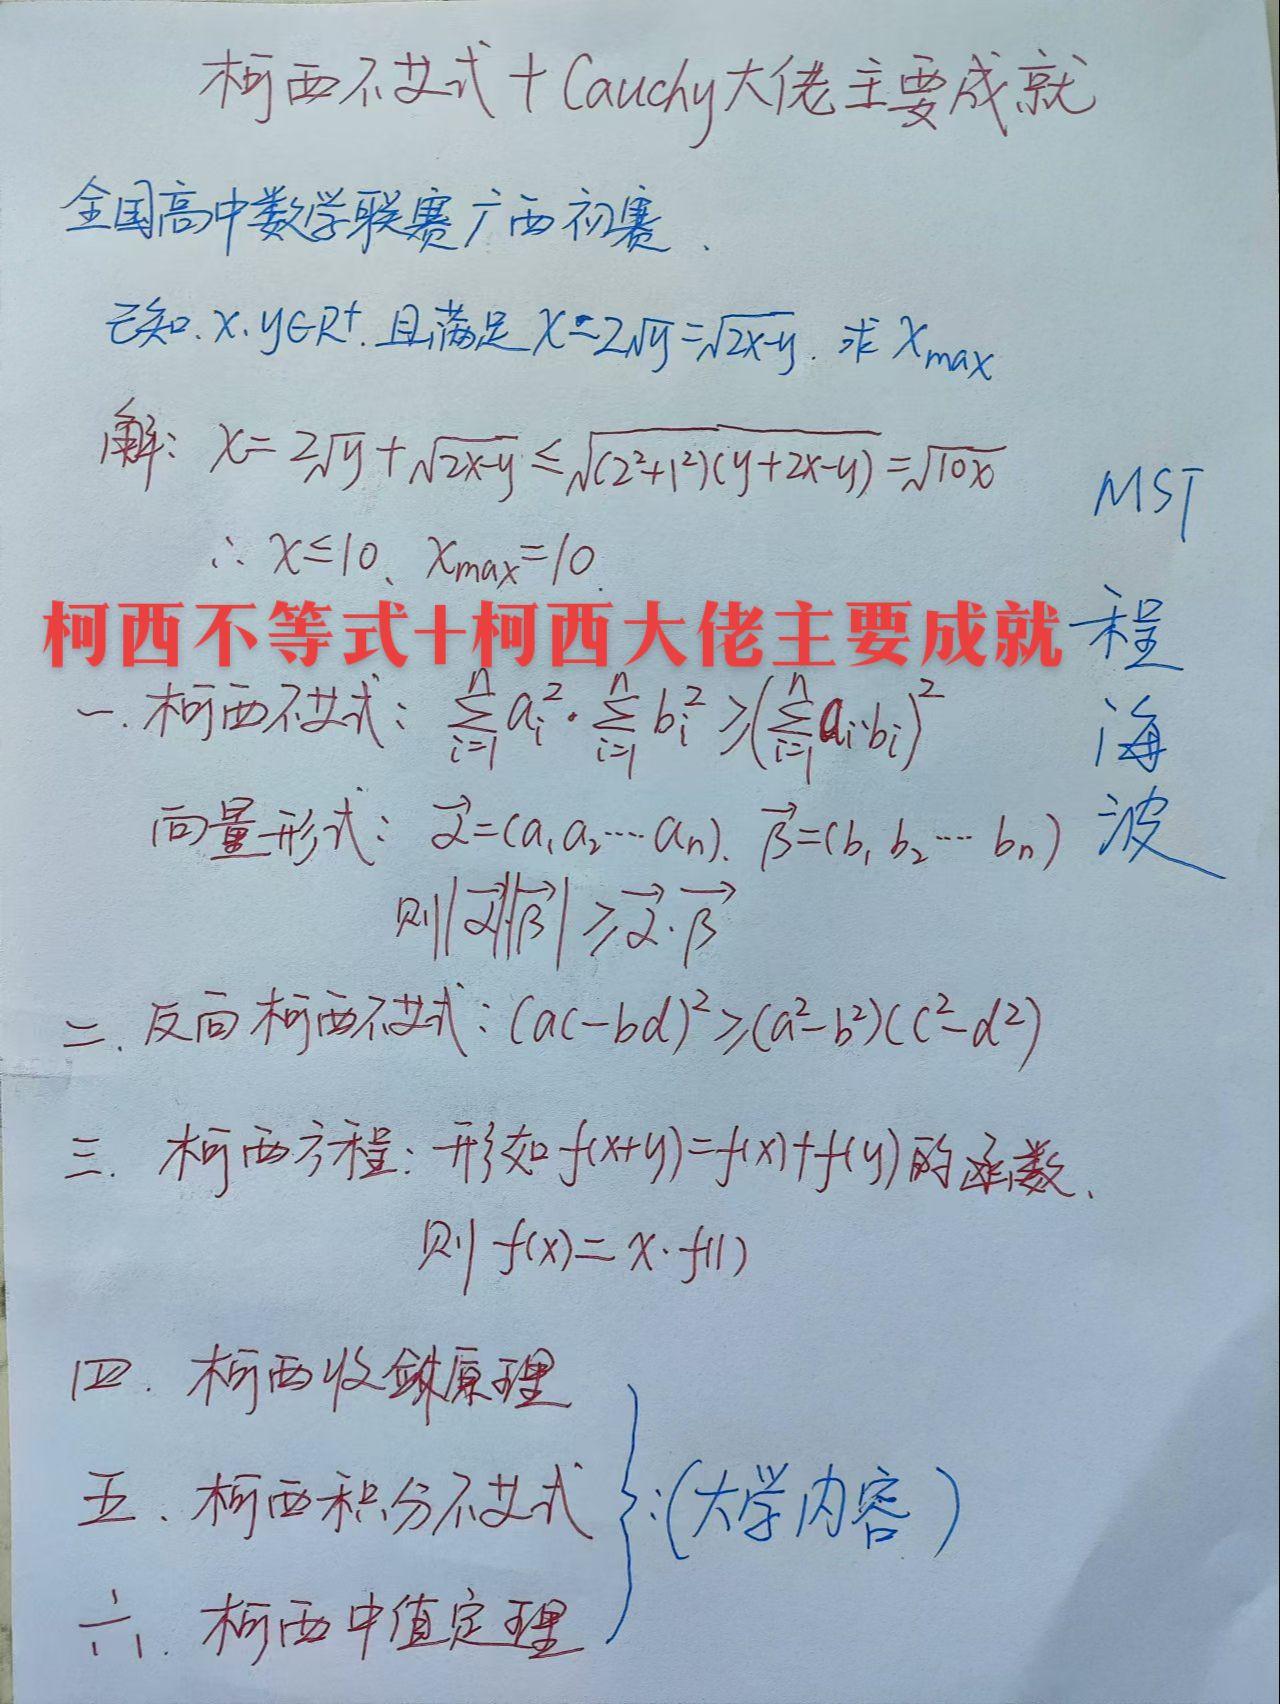 柯西不等式+Cauchy大佬主要成就
全国高中数学联赛广西初赛.
已知.x.y∈R⁺.且满足x-2√y=√(2x-y).求xmax
解:x=2√y+√(2x-y)≤√((2²+1²)(y+2x-y))=√(10x)
∴x≤10、xmax=10.
柯西不等式+柯西大佬主要成就
一.柯西不等式:∑ⁿᵢ₌₁aᵢ²·∑ⁿᵢ₌₁bᵢ²≥(∑ⁿᵢ₌₁aᵢ·bᵢ)²
向量形式:α⃗=(a₁a₂…aₙ).β⃗=(b₁b₂…bₙ)
则|α⃗||β⃗|≥α⃗·β⃗
二.反向柯西不等式:(ac-bd)²≥(a²-b²)(c²-d²)
三.柯西方程:形如f(x+y)=f(x)+f(y)的函数、
则f(x)=x·f(1)
四.柯西收敛原理
五.柯西积分不等式
六.柯西中值定理
:(大学内容)
MST
程
海
波